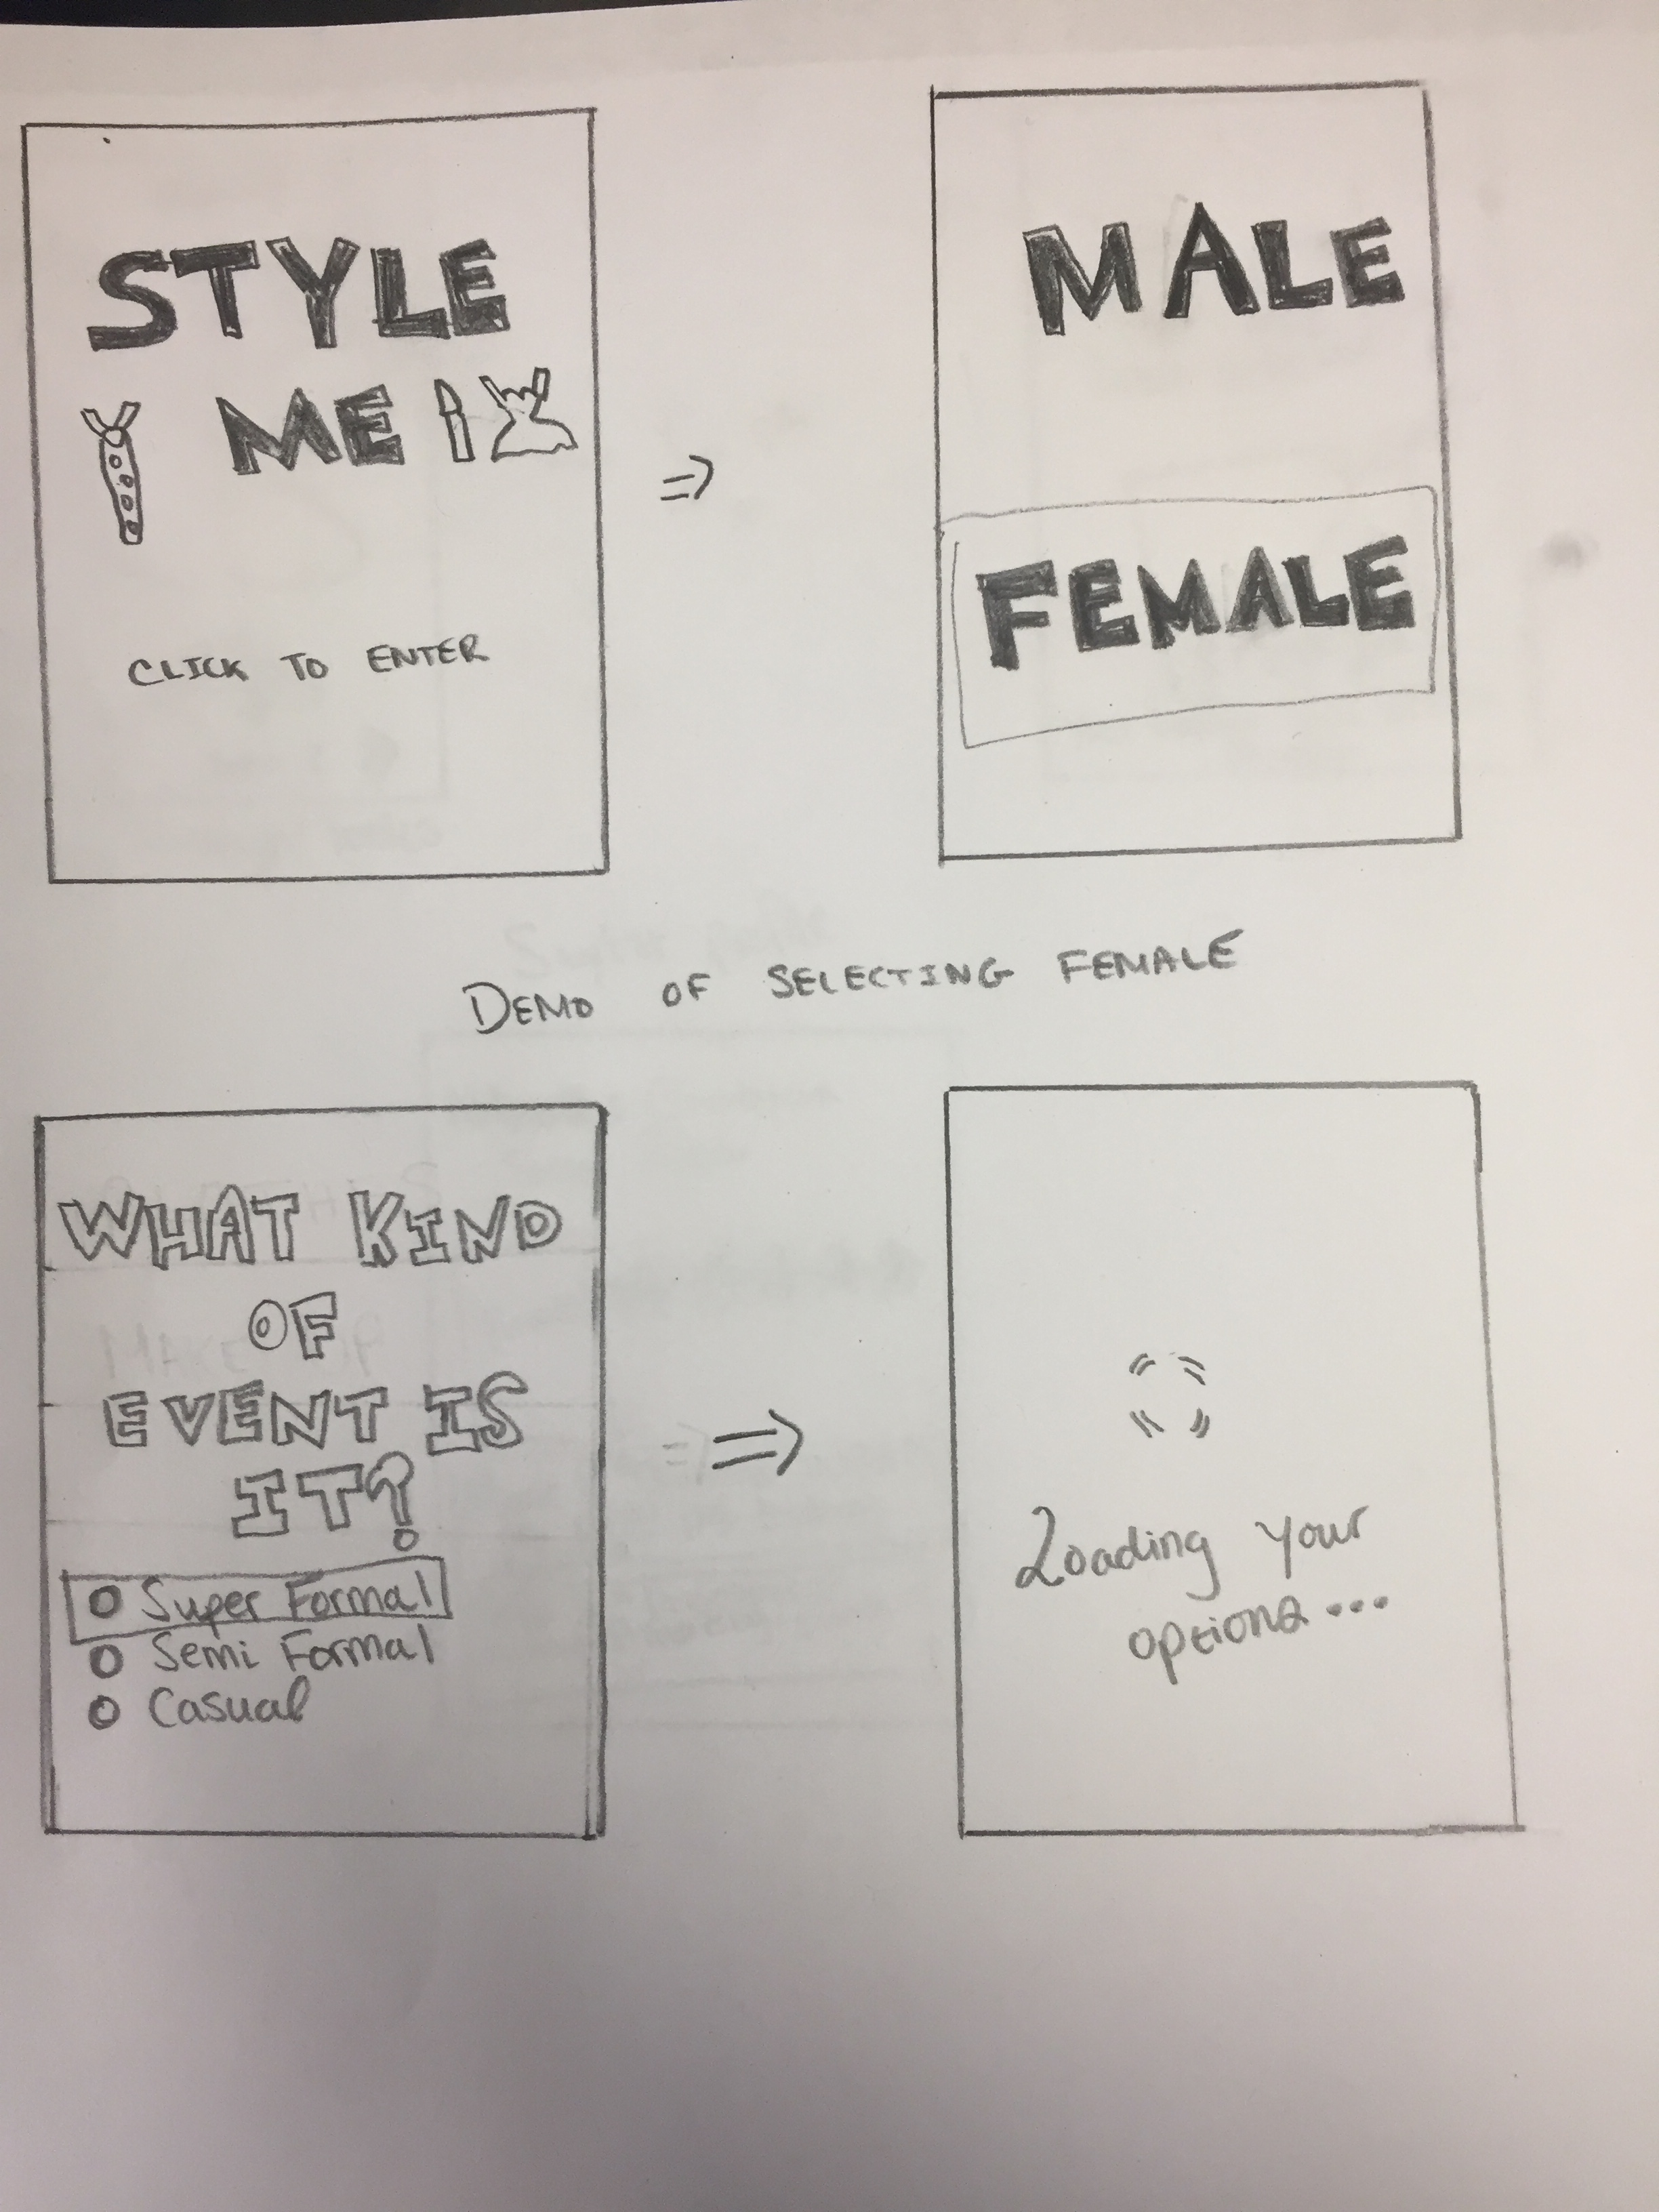 STYLE
ME
CLICK TO ENTER
MALE
FEMALE
DEMO OF SELECTING FEMALE
WHAT KIND
OF
EVENT IS
IT?
Super Formal
Semi Formal
Casual
Loading your
options...